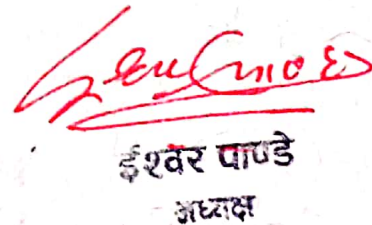 ईश्वर पाण्डे
अध्यक्ष